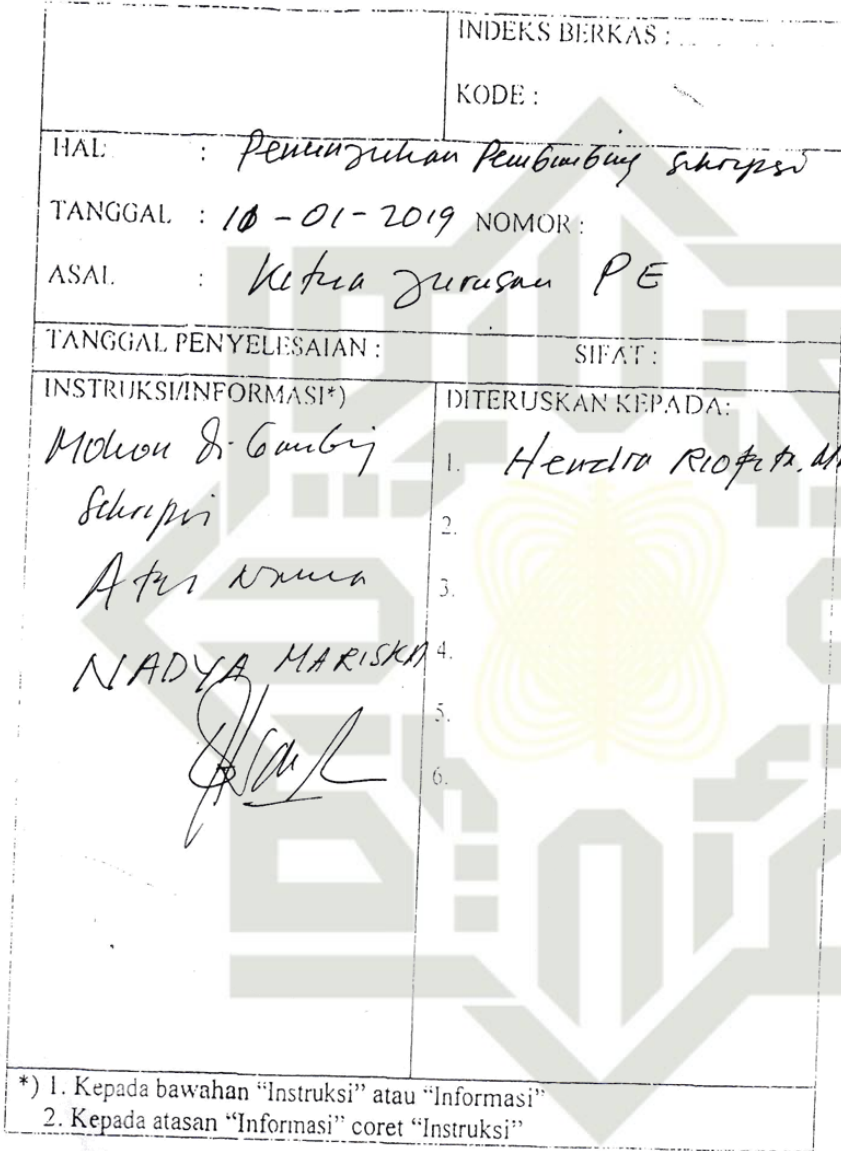 INDEKS BERKAS :
KODE :
HAL : Penunjukan Pembimbing Skripsi
TANGGAL : 10 - 01 - 2019 NOMOR :
ASAL : Ketua Jurusan PE
TANGGAL PENYELESAIAN : SIFAT :
INSTRUKSI/INFORMASI*)
Mohon di bimbing
Skripsi
Atas Nama
NADYA MARISKA
DITERUSKAN KEPADA:
1. Hendra Riofita, M
2.
3.
4.
5.
6.
*) 1. Kepada bawahan “Instruksi” atau “Informasi”
2. Kepada atasan “Informasi” coret “Instruksi”